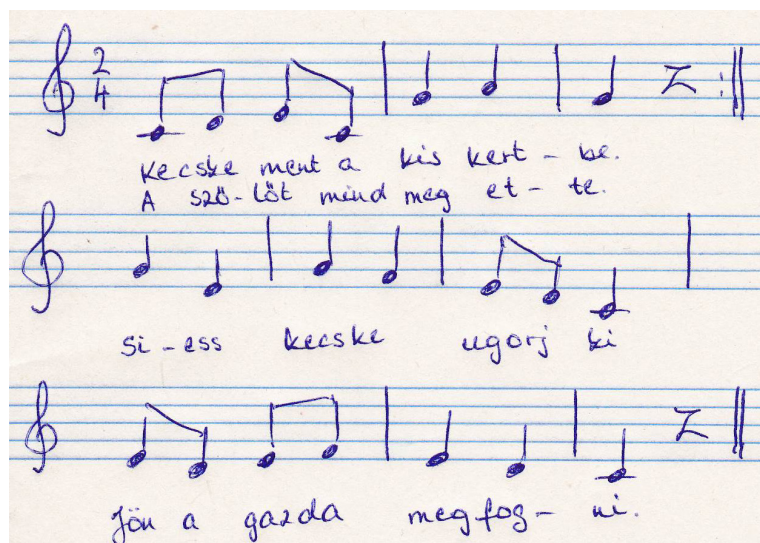 2
4
Kecske ment a kis kert - be.
A sző - lőt mind meg et - te.
Si - ess kecske ugorj ki
Jön a gazda megfog - ni.